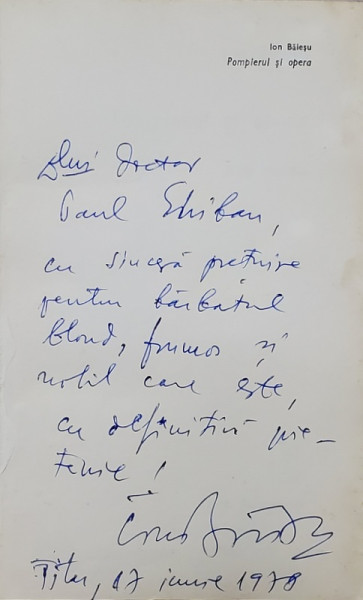 Ion Băieșu
Pompierul și opera
Dlui doctor
Paul
cu sinceră prețuire
pentru bărbatul
blond, frumos și
nobil care este,
cu definitivă prie-
tenie!
17 iunie 1978